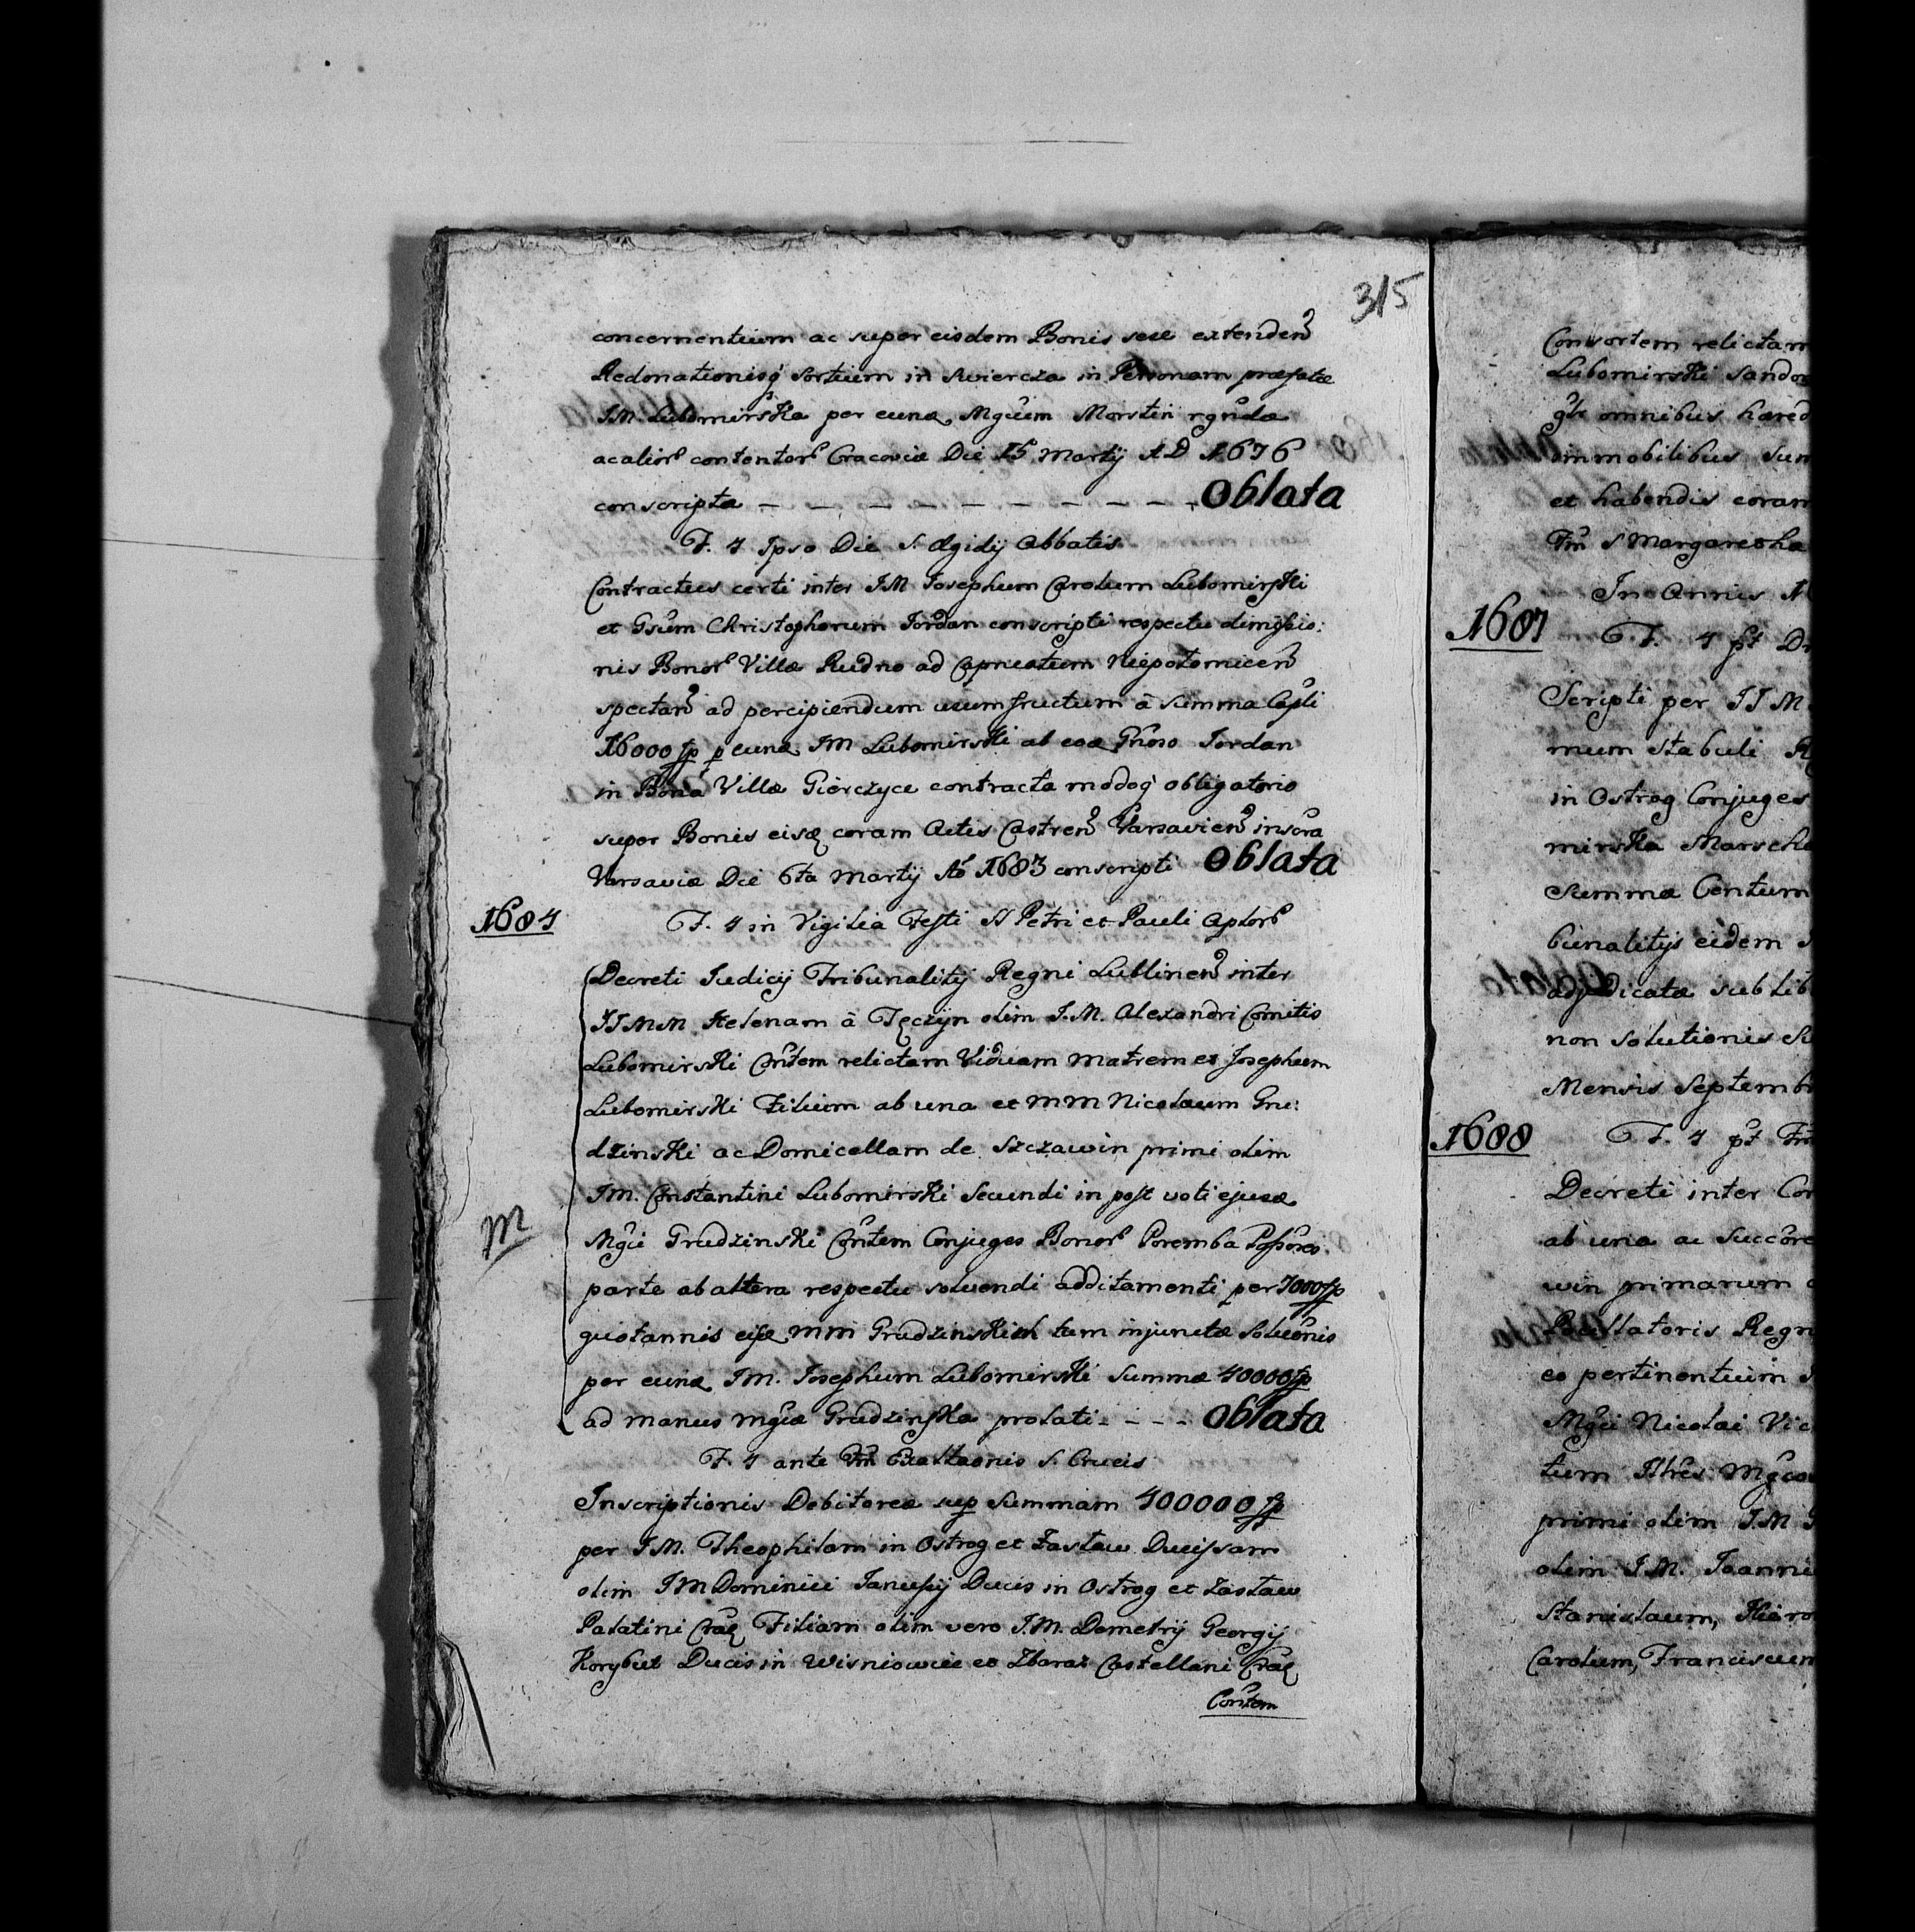 315
concernentium ac super eisdem Bonis sese extenden
Redonationisq sortium in Swiercza in Personam præfatæ
IM. Lubomirska per eunæ Mgcum Morstin rgndæ
ac alior contentor Cracoviæ Die 15 Martij AD 1676
conscripta — — — — — — — — Oblata
F. 4 Ipso Die S. Ægidij Abbatis
Contractus certi inter IM Iosephum Carolum Lubomirski
et Gsum Christophorum Iordan conscripti respectu dimissio:
nis Bonor Villæ Rudno ad Capneatum Niepotomicen
spectan ad percipiendum usumfructum â Summa Capli
16000 fp p eunæ IM Lubomirski ab eoæ Gnoso Iordan
in Bona Villæ Gierczyce contracta modoq obligatorio
super Bonis eisæ coram Actis Castren Varsavien inscra
Varsaviæ Die 6ta Martij Ao 1683 conscripti Oblata
1684
F. 4 in Vigilia Festi SS Petri et Pauli Aplor
Decreti Iudicij Tribunalitij Regni Lublinen inter
IIMM Helenam â Tęczyn olim I.M. Alexandri Comitis
Lubomirski Contem relictam Viduam Matrem et Iosephum
Lubomirski Filium ab una et MM Nicolaum Gru:
dzinski ac Domicellam de Szczawin primi olim
IM. Constantini Lubomirski Secundi in post voti ejusæ
M
Mgci Grudzinski Contem Conjuges Bonor Poremba Possores
parte ab altera respectu solvendi additamenti per 7000 fp
quotannis eisæ MM Grudzinskich tum injunctæ Solutionis
per eunæ IM. Iosephum Lubomirski Summæ 40000 fp
ad manus Mgcæ Grudzinska prolati - - - Oblata
F. 4 ante Fm Exaltaonis S. Crucis
Inscriptionis Debitoreæ sup Summam 400000 fp
per IM. Theophilam in Ostrog et Zaslaw Ducissam
olim IM Dominici Ianussij Ducis in Ostrog et Zaslaw
Palatini Craę Filiam olim vero I.M. Demetrij Georgij
Korybut Ducis in Wisniowiec et Zbaraz Castellani Craę
Contem
Consortem relictam
Lubomirski Sando
omnibus hæred
immobilibus Sum
et habendis coram
Fm S Margarethæ
In Annis
1687
F. 4 pt
Scripti per IIM
mum stabuli R
in Ostrog Conjuges
mirska Marscha
Summæ Centum
bunalitijs eidem
adjudicatæ sub lib
non solutionis
Mensis Septemb
1688
F. 4 pt
Decreti inter
ab una ac Succore
win primarum
Pocillatoris Regn
eo pertinentium
Mgci Nicolai Vic
tum Illres Mgco
primi olim IM
olim I.M. Ioanni
Stanislaum, Hiero
Carolum, Franciscum